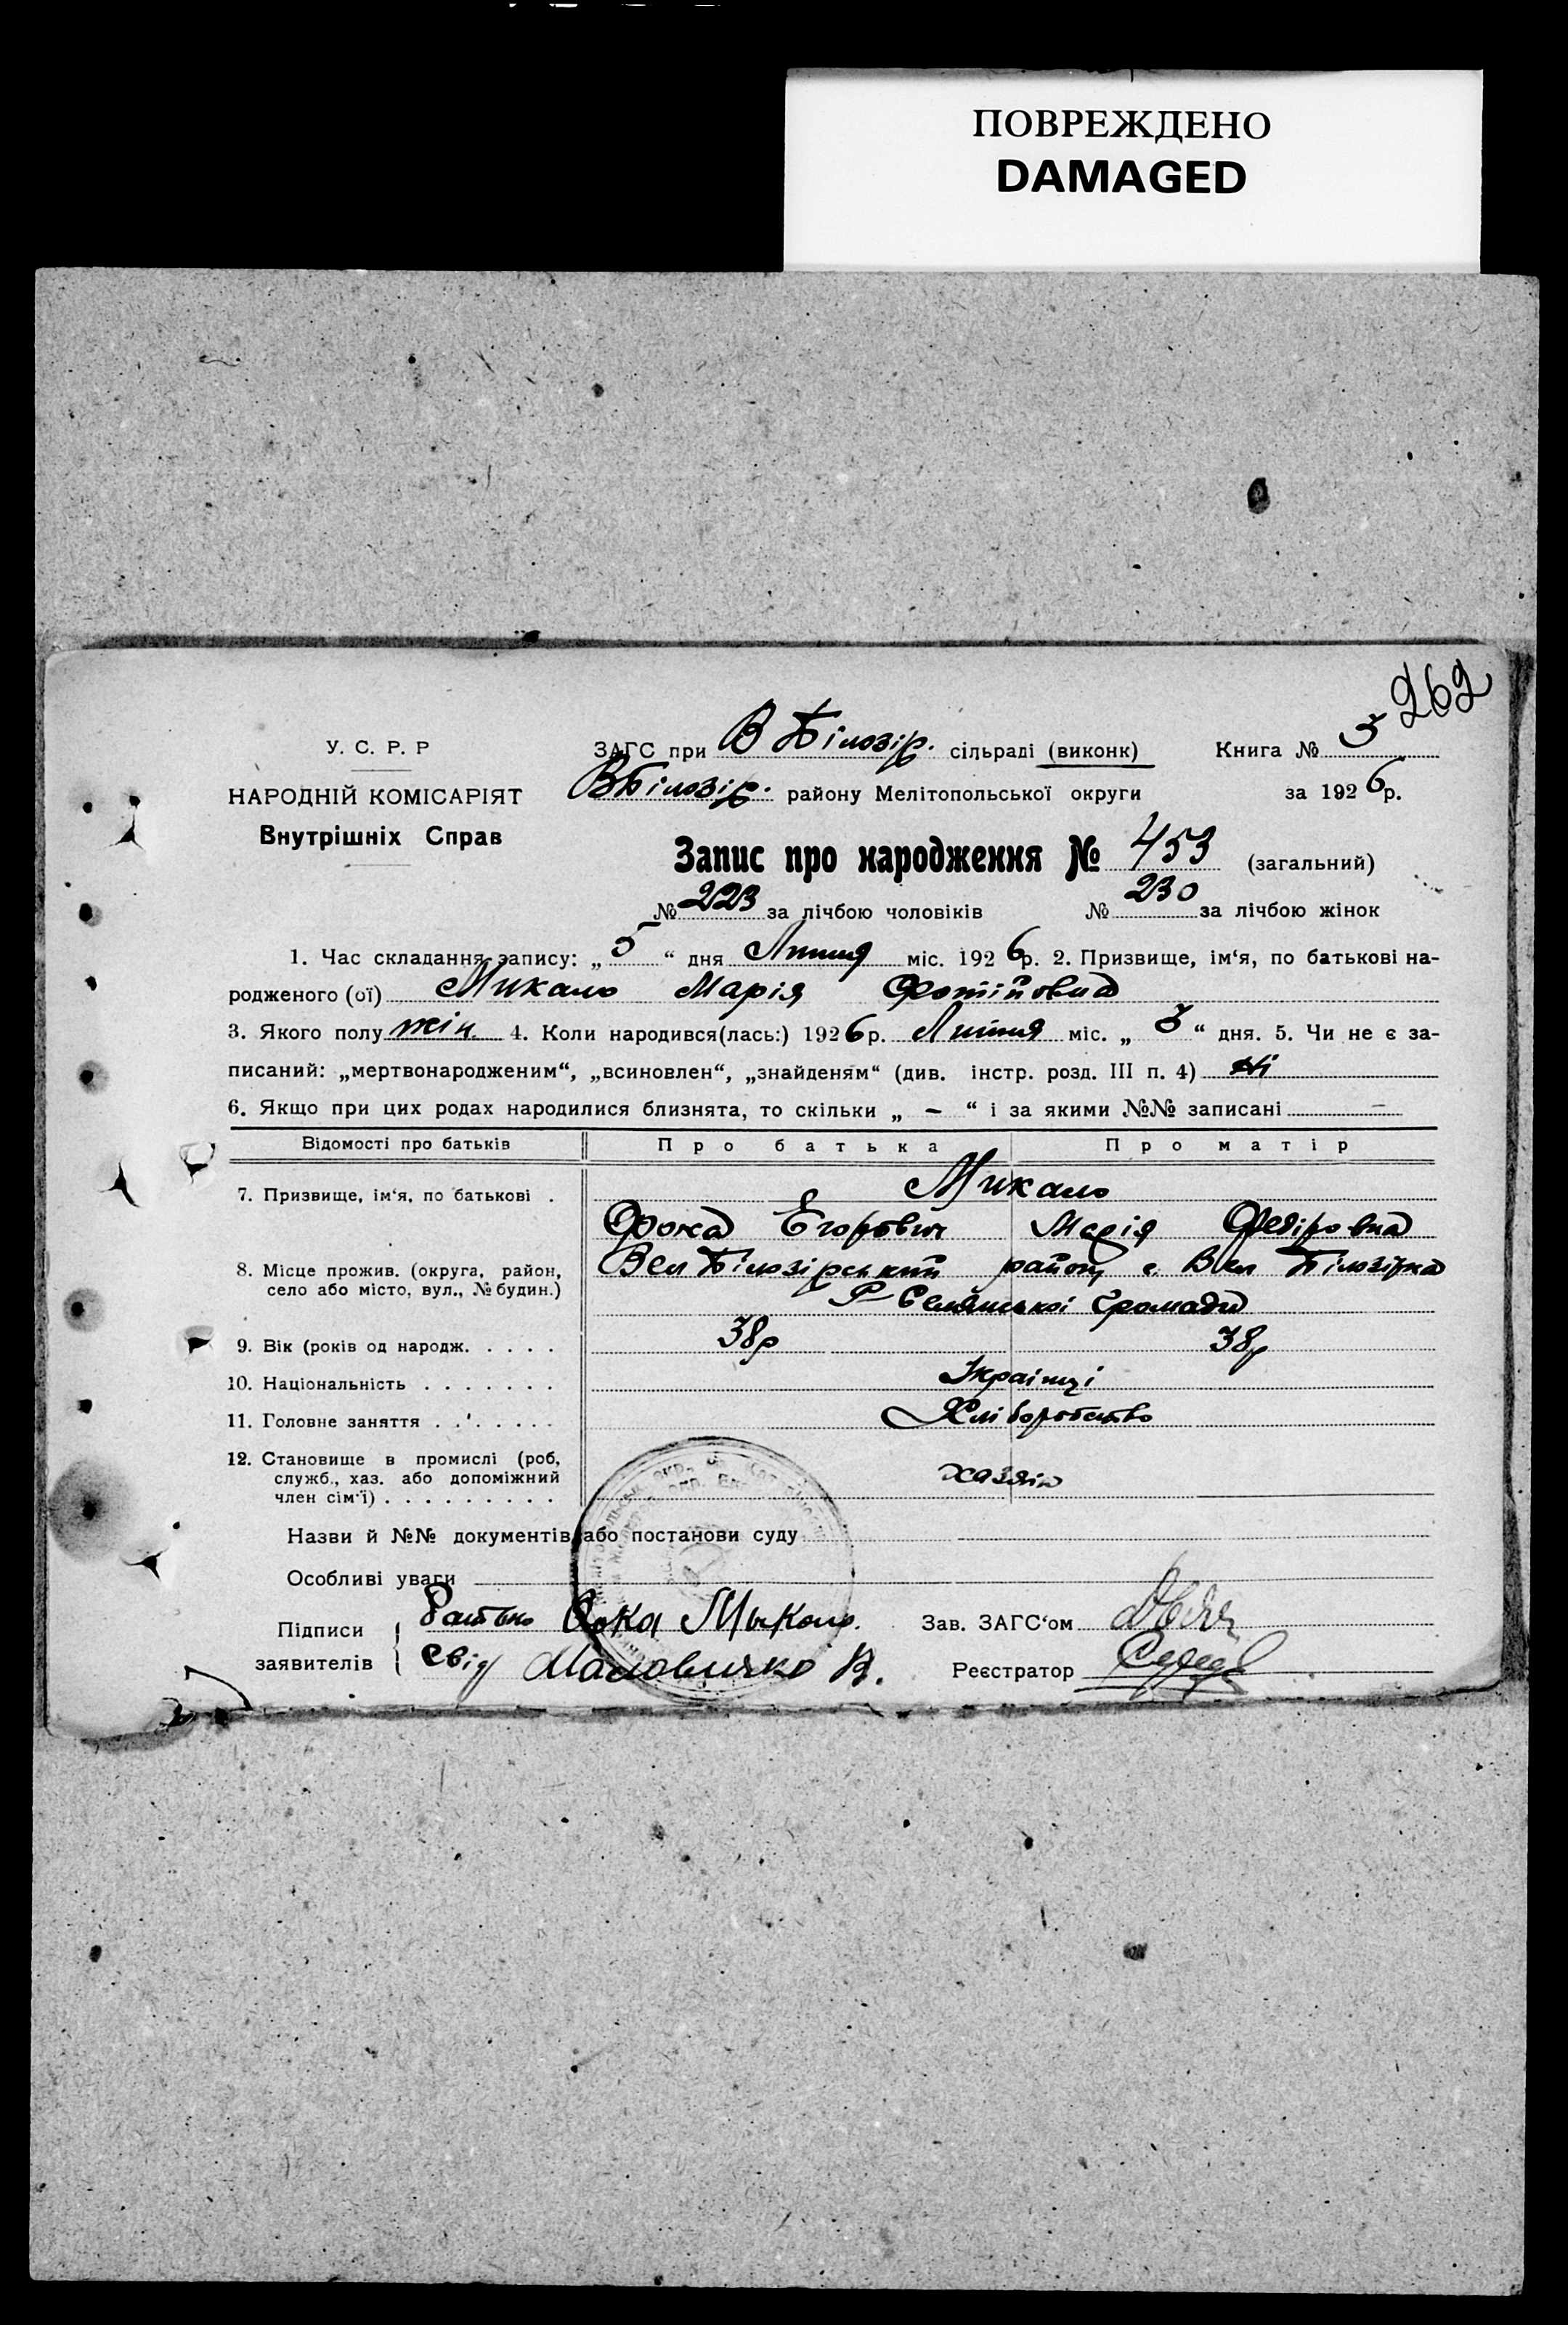 ПОВРЕЖДЕНО
DAMAGED
262
У. С. Р. Р
НАРОДНІЙ КОМІСАРІЯТ
Внутрішніх Справ
ЗАГС при В Білозір. сільраді (виконк) Книга № 3
ВБілозір. району Мелітопольської округи за 1926р.
Запис про народження № 453 (загальний)
№ 223 за лічбою чоловіків № 230 за лічбою жінок
1. Час складання запису: „ 5 “ дня Липня міс. 1926р. 2. Призвище, ім‘я, по батькові на-
родженого (ої) Микало Марія Фотіївна
3. Якого полу жін. 4. Коли народився(лась:) 1926р. Липня міс. „ 3 “ дня. 5. Чи не є за-
писаний: „мертвонародженим“, „всиновлен“, „знайденям“ (див. інстр. розд. III п. 4) ні
6. Якщо при цих родах народилися близнята, то скільки „ – “ і за якими №№ записані –
Відомості про батьків Про батька Про матір
7. Призвище, ім‘я, по батькові . Микало
Фока Егорович Марія Федіровна
8. Місце прожив. (округа, район, село або місто, вул., № будин.) Вел Білозірський район, с. Вел Білозірка
Селянської Громади
9. Вік (років од народж. . . . . 38р 38р
10. Національність . . . . . . . Українці
11. Головне заняття . . . . . . Хліборобство
12. Становище в промислі (роб,
служб., хаз. або допоміжний
член сім‘ї) . . . . . . . . . хазяін
Назви й №№ документів або постанови суду
Особливі уваги
Підписи заявителів { Батько Фока Мыкало. Зав. ЗАГС‘ом
Свід В. Реєстратор